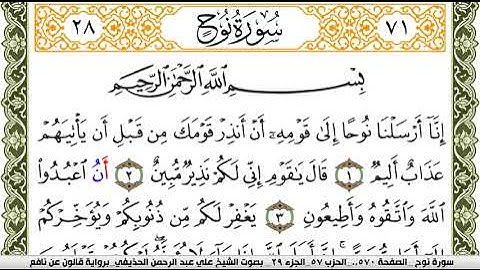 ٧١ سُورَةُ نُوحٍ ٢٨
بِسْمِ اللَّهِ الرَّحْمَٰنِ الرَّحِيمِ
إِنَّآ أَرْسَلْنَا نُوحًا إِلَىٰ قَوْمِهِۦٓ أَنْ أَنذِرْ قَوْمَكَ مِن قَبْلِ أَن يَأْتِيَهُمْ
عَذَابٌ أَلِيمٌ ١ قَالَ يَٰقَوْمِ إِنِّي لَكُمْ نَذِيرٌ مُّبِينٌ ٢ أَنُ اعْبُدُوا
اللَّهَ وَاتَّقُوهُ وَأَطِيعُونِ ٣ يَغْفِرْ لَكُم مِّن ذُنُوبِكُمْ وَيُؤَخِّرْكُمْ
سورة نوح _ الصفحة ٥٧٠.. الحزب ٥٧_ الجزء ٢٩ _ بصوت الشيخ علي عبد الرحمن الحذيفي_ برواية قالون عن نافع